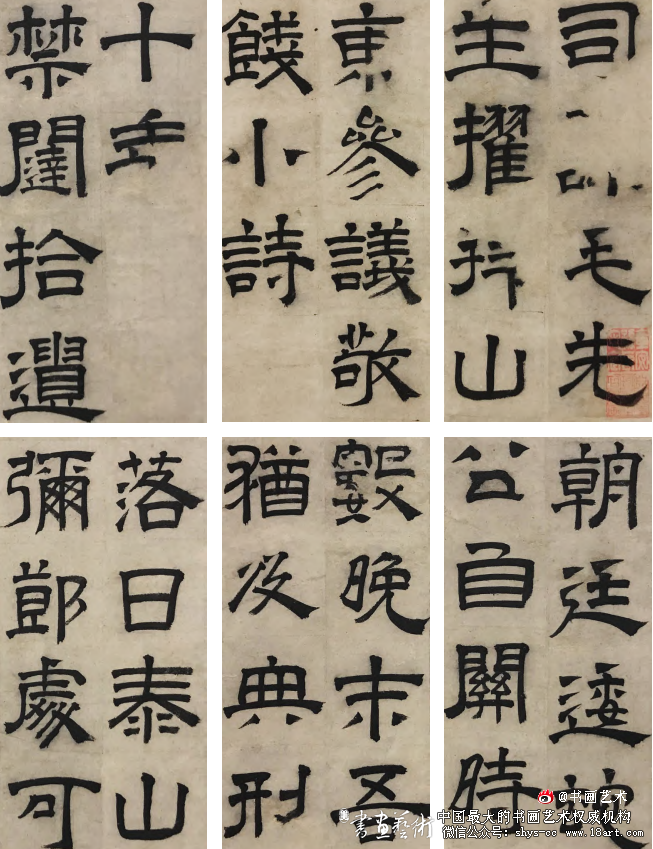 司毛先
生擢山
東參議敬
餞小詩
十年
禁闥拾遺
朝廷逶
公自關時
數晚末
猶及典刑
落日泰山
彌處可
書畫藝術
@书画艺术
中国最大的书画艺术权威机构
微信公众号：shys-cc www.18art.com